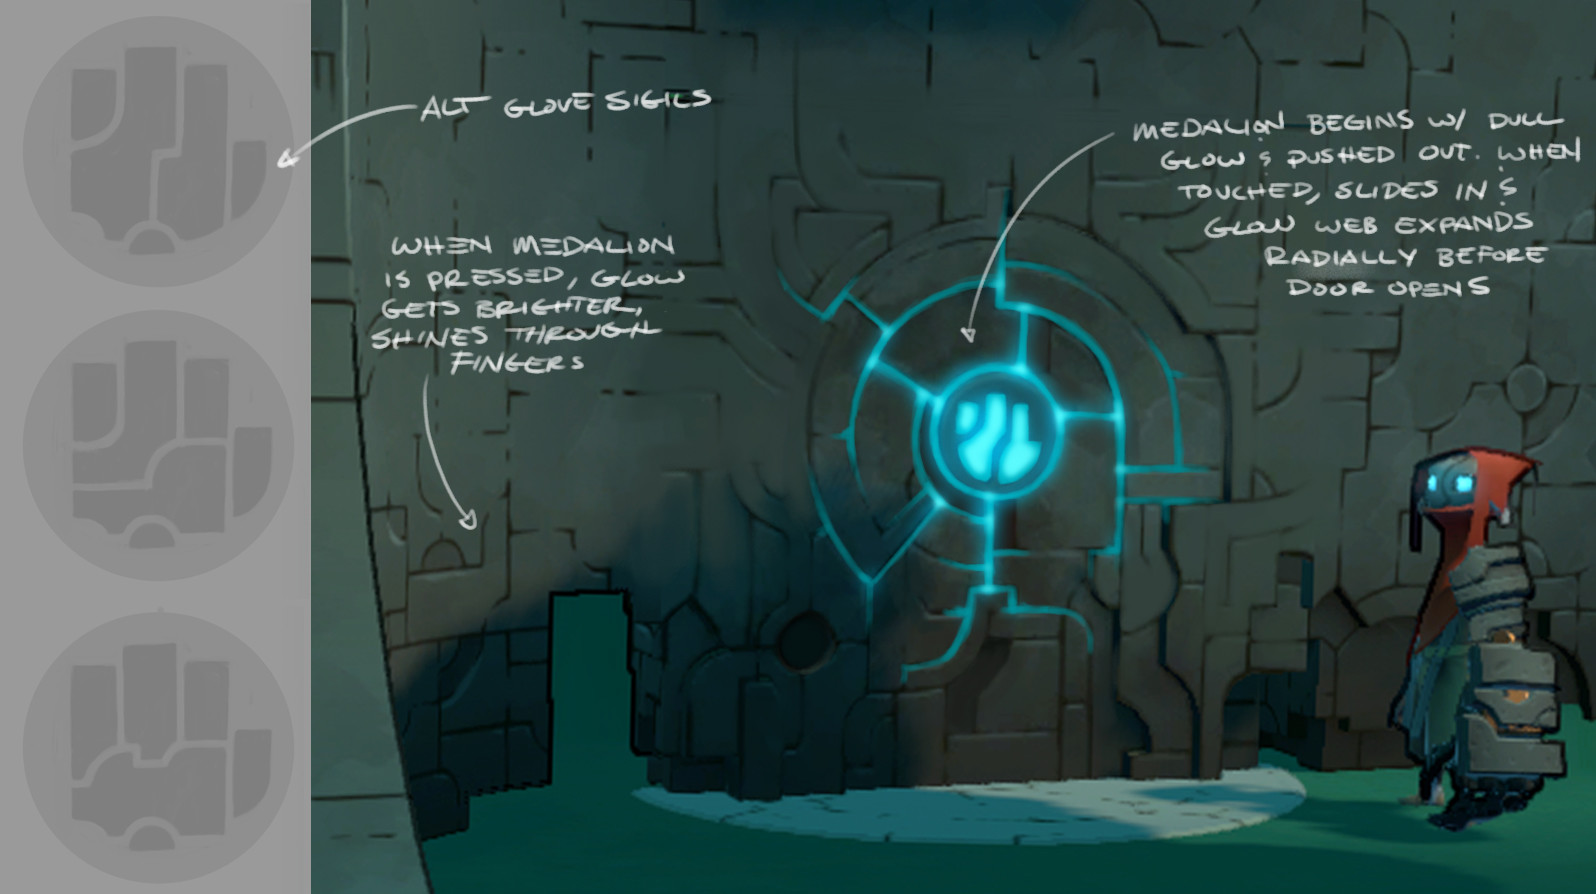 ALT GLOVE SIGILS
WHEN MEDALION
IS PRESSED, GLOW
GETS BRIGHTER,
SHINES THROUGH
FINGERS
MEDALION BEGINS W/ DULL
GLOW & PUSHED OUT. WHEN
TOUCHED, SLIDES IN &
GLOW WEB EXPANDS
RADIALLY BEFORE
DOOR OPENS